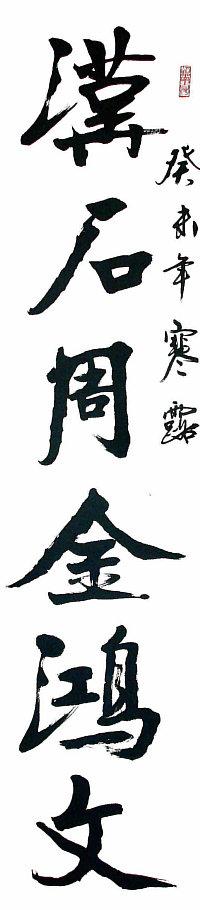 癸未年寒露
漢石周金鴻文